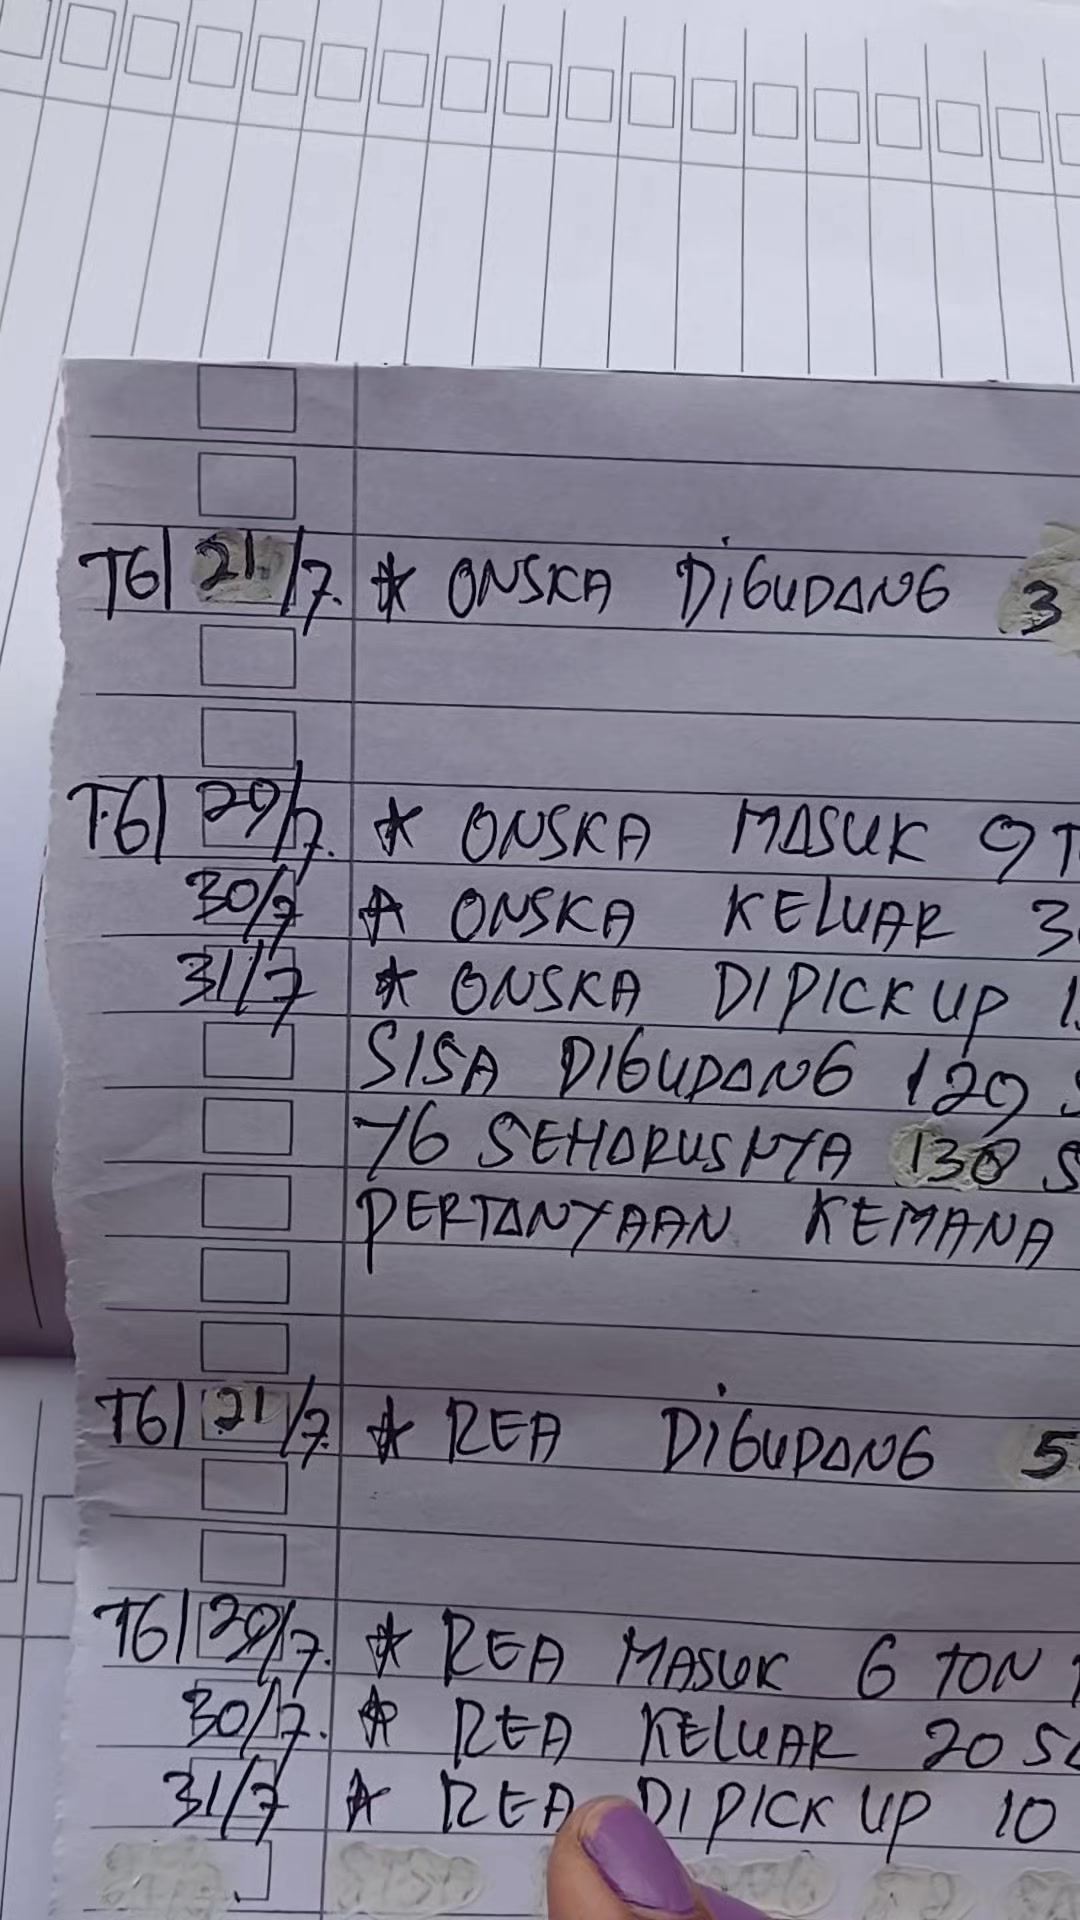 TG| 21/7. * ONSKA DIGUDANG 3
TG| 29/7. * ONSKA MASUK 9 T
30/7 * ONSKA KELUAR 3
31/7 * ONSKA DIPICK UP 1
SISA DIGUDANG 129 S
YG SEHARUSNYA 138 S
PERTANYAAN KEMANA
TG| 21/7. * REA DIGUDANG 5
TG| 29/7. * REA MASUK 6 TON
30/7. * REA KELUAR 20 SA
31/7 * REA DIPICK UP 10